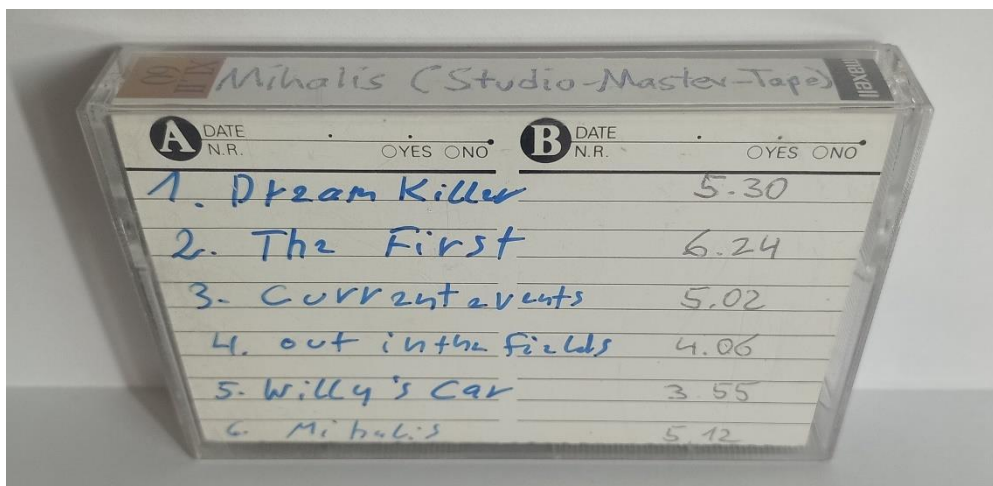 XLII Mihalis (Studio-Master-Tape) maxell
A DATE B DATE
N.R. YES NO N.R. YES NO
1. Dream Killer 5.30
2. The First 6.24
3. Current events 5.02
4. out in the fields 4.06
5. Willy's Car 3.55
6. Mihalis 5.12